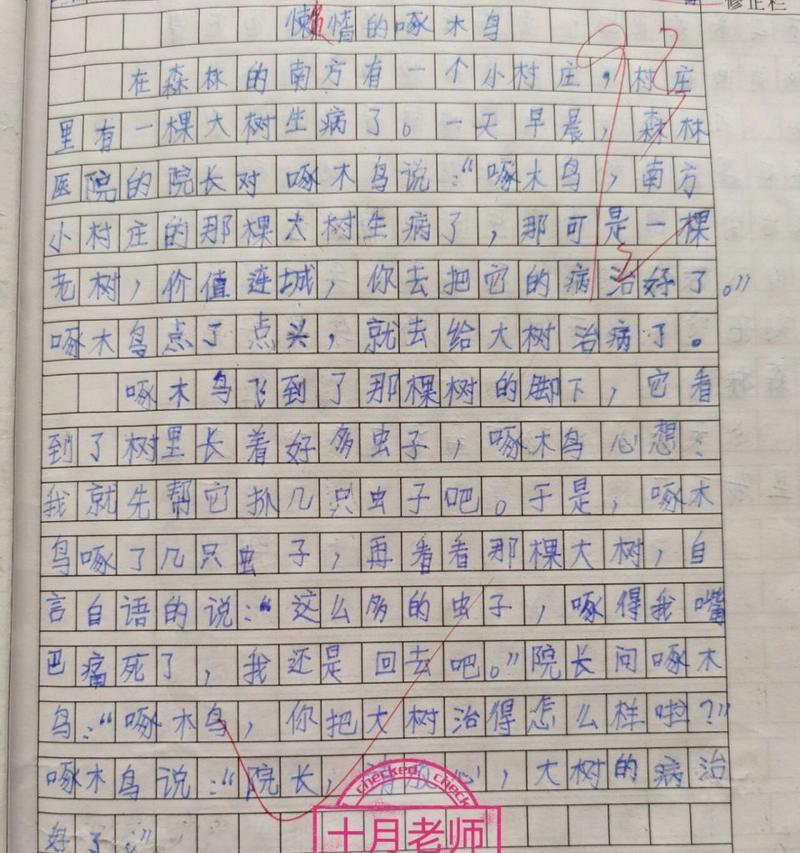 修正栏
懒惰的啄木鸟
在森林的南方有一个小村庄，村庄
里有一棵大树生病了。一天早晨，森林
医院的院长对啄木鸟说：“啄木鸟，南方
小村庄的那棵大树生病了，那可是一棵
老树，价值连城，你去把它的病治好了。”
啄木鸟点了点头，就去给大树治病了。
啄木鸟飞到了那棵树的脚下，它看
到了树里长着好多虫子，啄木鸟心想：
我就先帮它抓几只虫子吧。于是，啄木
鸟啄了几只虫子，再看看那棵大树，自
言自语的说：“这么多的虫子，啄得我嘴
巴痛死了，我还是回去吧。”院长问啄木
鸟：“啄木鸟，你把大树治得怎么样啦？”
啄木鸟说：“院长，心，大树的病治
好了。”
checked check
十月老师